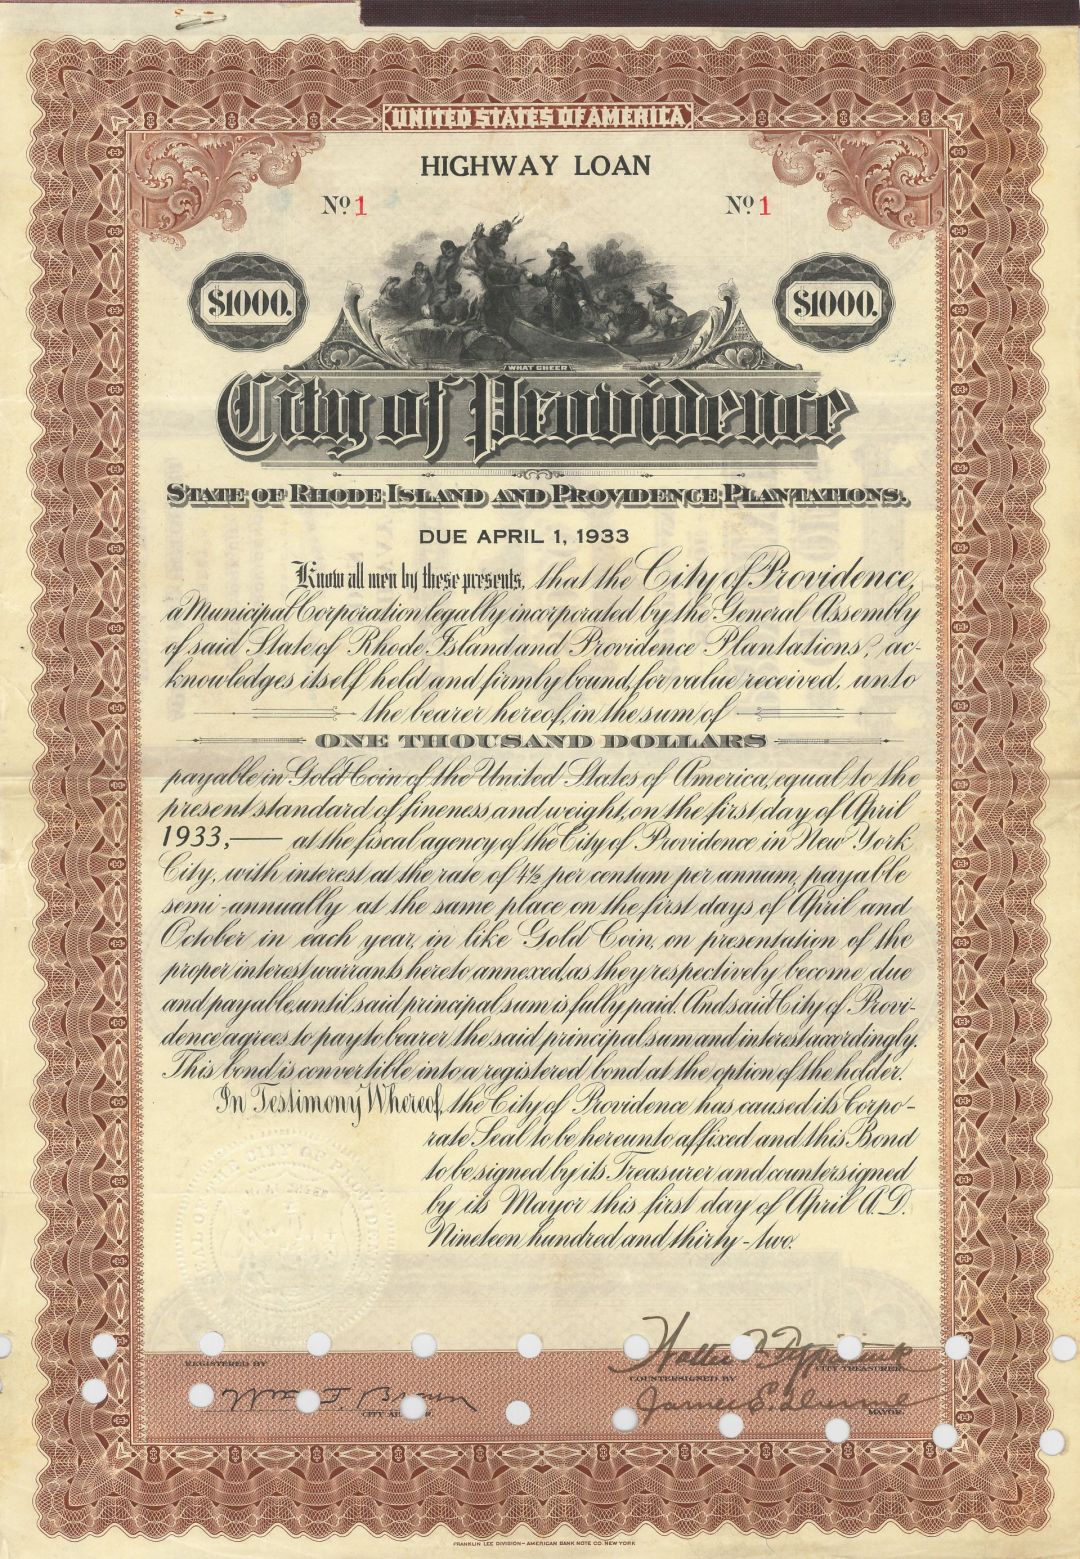 UNITED STATES OF AMERICA
HIGHWAY LOAN
No. 1 No. 1
$1000. $1000.
WHAT CHEER
City of Providence
STATE OF RHODE ISLAND AND PROVIDENCE PLANTATIONS.
DUE APRIL 1, 1933
Know all men by these presents, that the City of Providence,
a Municipal Corporation legally incorporated by the General Assembly
of said State of Rhode Island and Providence Plantations, ac-
knowledges itself held and firmly bound, for value received, unto
the bearer hereof, in the sum of
ONE THOUSAND DOLLARS
payable in Gold Coin of the United States of America, equal to the
present standard of fineness and weight, on the first day of April
1933,— at the fiscal agency of the City of Providence in New York
City, with interest at the rate of 4½ per centum per annum, payable
semi-annually at the same place on the first days of April and
October in each year, in like Gold Coin, on presentation of the
proper interest warrants hereto annexed, as they respectively become due
and payable, until said principal sum is fully paid. And said City of Provi-
dence agrees to pay to bearer the said principal sum and interest accordingly.
This bond is convertible into a registered bond at the option of the holder.
In Testimony Whereof, the City of Providence has caused its Corpo-
rate Seal to be hereunto affixed and this Bond
to be signed by its Treasurer and countersigned
by its Mayor this first day of April A.D.
Nineteen hundred and thirty-two.
REGISTERED BY
Wm F. Brown
CITY
Walter F. Fitzpatrick
CITY TREASURER
COUNTERSIGNED BY
James E. Dunne
MAYOR.
FRANKLIN LEE DIVISION - AMERICAN BANK NOTE CO. NEW YORK